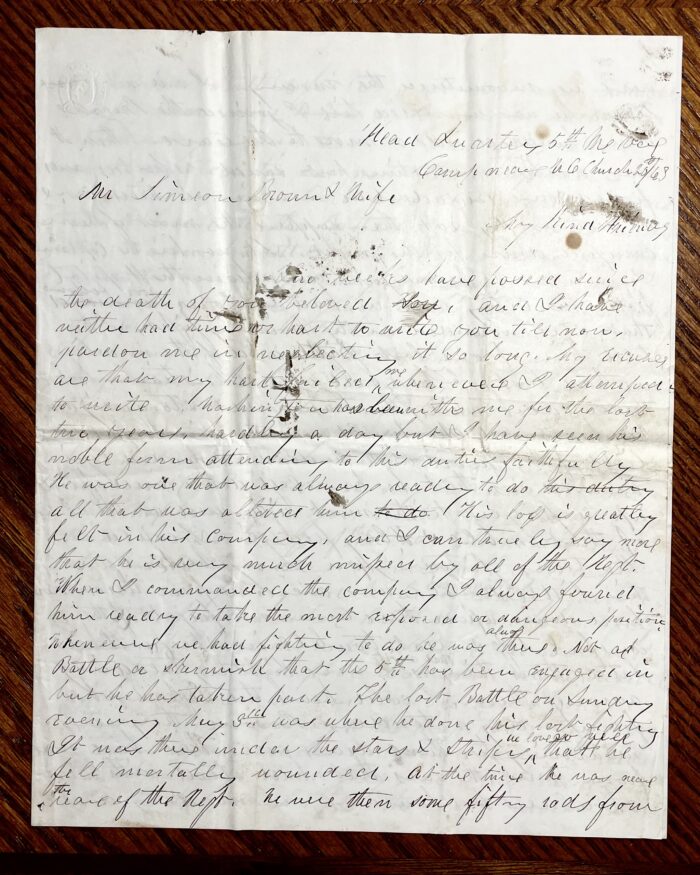 Head Quarters 5th Me Regt
Camp near W O Church 23/63
Mr Simeon Brown & Wife
My Kind Friends
weeks have passed since
the death of your beloved Son, and I have
neither had time or hart to write you till now,
pardon me in neglecting it so long. My excuses
are that my hart failed me whenever I attempted
to write. has been with me for the last
two years, hardly a day but I have seen his
noble form attending to his duties faithfully
He was one that was always ready to do his duty
all that was allowed him to do His loss is greatly
felt in his Company, and I can truely say more
that he is very much missed by all of the Regt.
When I commanded the company I always found
him ready to take the most exposed or dangerous position,
Whenever we had fighting to do he was always there. Not a
Battle or skirmish that the 5th has been engaged in
but he has taken part. The last Battle on Sunday
evening May 3rd was where he done his last fighting
It was there under the stars & stripes, he loved so well that he
fell mortally wounded, at the time he was near
the rear of the Regt. We were then some fifty rods from